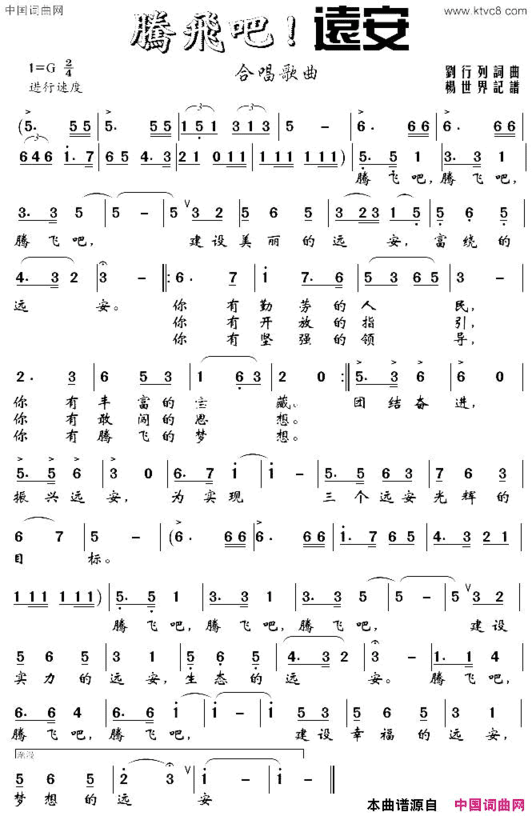 中国词曲网
www.ktvc8.com
騰飛吧！遠安
1=G 2/4
進行速度
合唱歌曲
劉行列詞曲
楊世界記譜
(5. 55 | 5. 55 | 151 313 | 5 - | 6. 66 | 6. 66 |
646 i.7 | 65 43. | 21 011 | 111 111) | 5. 5 1 | 3. 3 1 |
腾飞吧，腾飞吧，
3. 3 5 | 5 - | 5 3 2 | 5 6 5 | 3 23 1 5 | 5 6 5 |
腾飞吧，建设美丽的远安，富绕的
4. 3 2 | 3 - |: 6. 7 | 1 7.6 | 5 3 5 1 | 3 - |
远安。你有勤劳的人民，
你有开放的指引，
你有坚强的领导，
2. 3 | 6 5 3 | 1 6 3 | 2 0 :| 5. 3 6 | 6 0 |
你有丰富的宝藏。团结奋进，
你有敢闯的思想。
你有腾飞的梦想。
5. 5 6 | 3 0 | 6. 7 i | i - | 5 3 5 6 | 7 6 5 |
振兴远安，为实现三个远安光辉的
6 7 | 5 - | (6. 66 | 6. 66 | i. 7 65 | 4. 3 21 |
目标。
111 111) | 5. 5 1 | 3. 3 1 | 3. 3 5 | 5 - | 5 3 2 |
腾飞吧，腾飞吧，腾飞吧，建设
5 6 5 | 3 1 | 5 6 5 | 4. 3 2 | 3 - | 6. 6 4 |
实力的远安，生态的远安。腾飞吧，
6. 6 4 | 6. 6 i | i - | i 6 5 | 5 6 5 | 3 1 |
腾飞吧，腾飞吧，建设幸福的远安，
渐慢
5 6 5 | 2 3 | i - | i - ‖
梦想的远安
本曲谱源自 中国词曲网